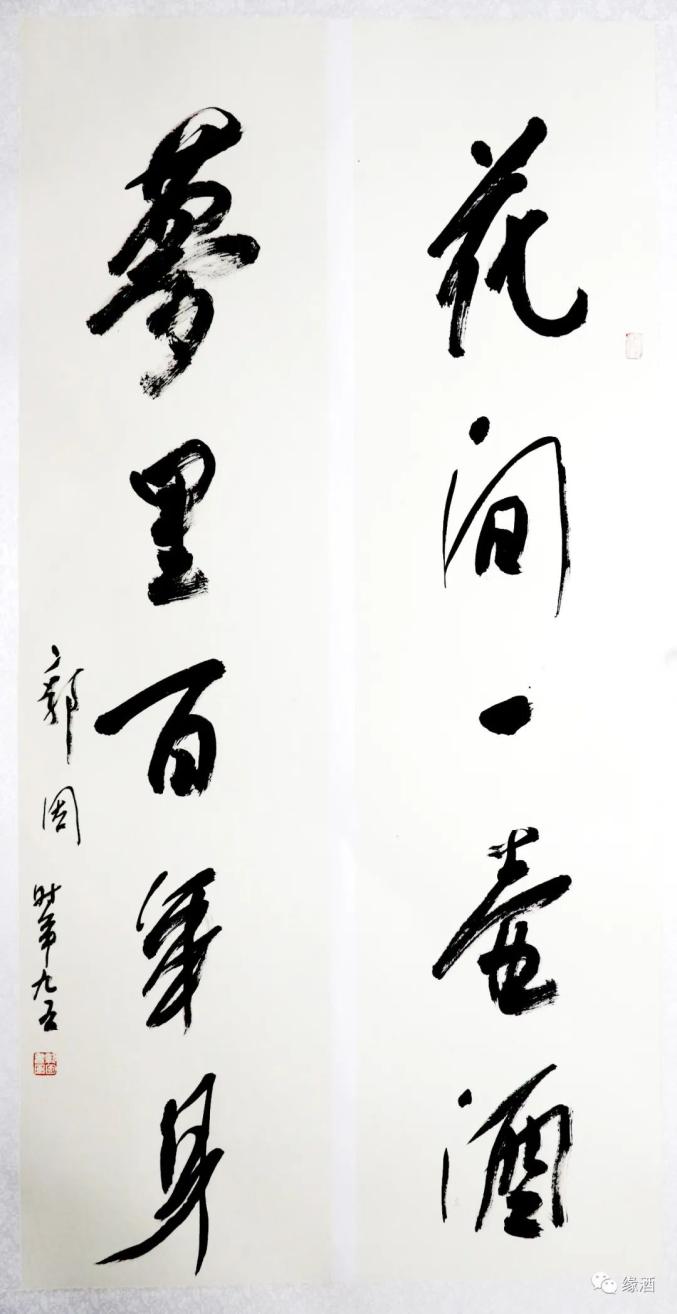 花间一壶酒
夢里百年身
郭周
时年九五
缘酒